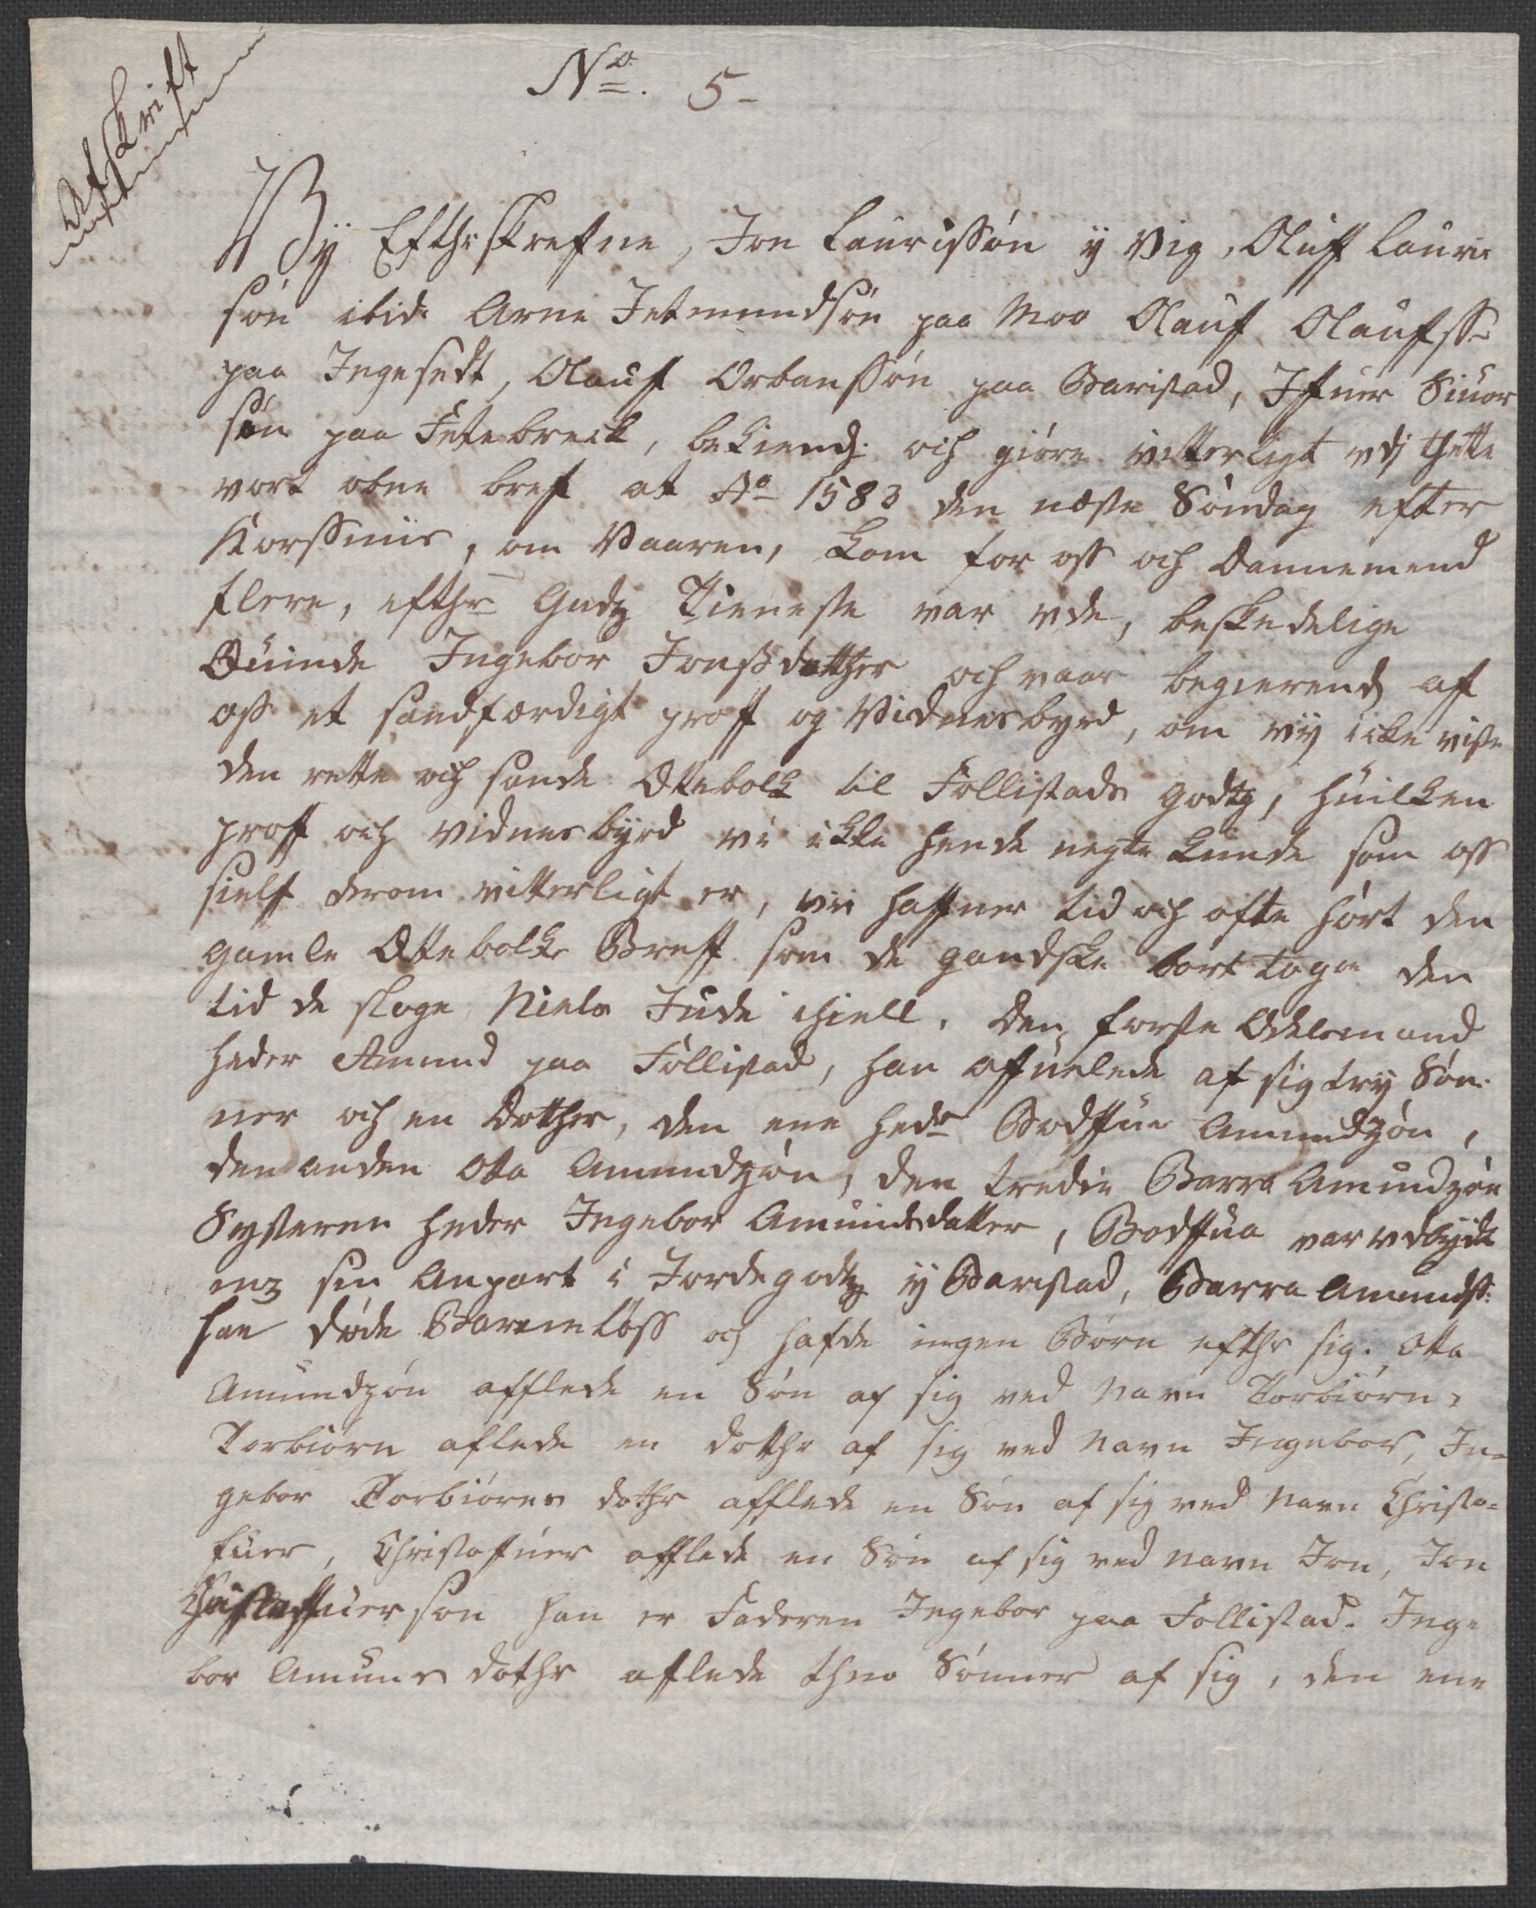 Afskrift
No. 5-
Vy Efthrskrefne, Jon Laurissøn y Vig, Oluff Lauri
søn ibid: Arne Jetmundsøn paa Moo Olauf Olaufss:
paa Ingesedt, Olauf Orbanssøn paa Baristad, Ifuer Siuor
søn paa Fetebreck, bekiend: och giøre vitterligt vdj thette
vort obne bref at Ao 1583 den næste Søndag efter
Korssmis, om Vaaren, kom for oss och Dannemend
flere, efthr Gudz Tieneste var vde, beskedelige
Quinde Ingebor Jonssdotther och vaar begierend af
oss et sandfærdigt proff og Vidnesbyrd, om vij icke viste
den rette och sande Ottebolk til Follistads godtz, huilken
proff och vidnesbyrd vi ikke hende negte kunde som oss
sielf derom vitterligt er, vii haffuer tid och ofte hørt den
gamle Ottebolks Breff som de gandske bort toge den
tid de sloge Niels Jude ihiell. Den første Odelsmand
heder Amund paa Follistad, han affuelede af sig try Søn-
ner och en Dotther, den ene hedr Bodffue Amundzøn,
den anden Otta Amundzøn, den tredie Barra Amundzøn
Systeren heder Ingebor Amundsdatter, Bodffua var vdbydt
mz sin Anpart i Jordegodtz y Baristad, Barra Amundss:
han døde Barneløss och hafde ingen Børn efthr sig. Otta
Amundzøn afflede en Søn af sig ved Navn Torbiørn,
Torbiørn aflede en dotthr af sig ved Navn Ingebor, In-
gebor Torbiørns dothr afflede en Søn af sig ved Navn Christo-
fuer, Christofuer afflede en Søn af sig ved Navn Jon, Jon
Christoffuerson han er Faderen Ingebor paa Follistad. Inge
bor Amuns dothr aflede thuo Sønner af sig, den ene